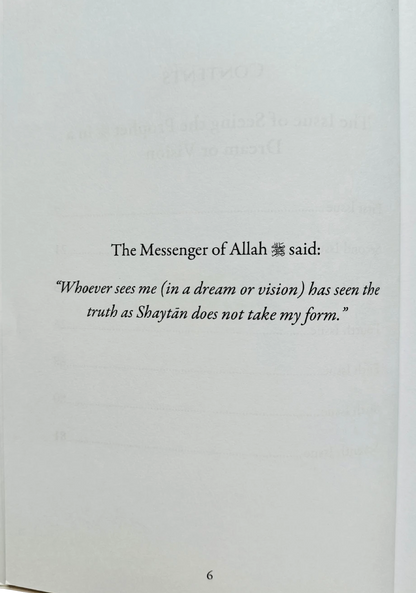 The Messenger of Allah ﷺ said:
“Whoever sees me (in a dream or vision) has seen the
truth as Shayṭān does not take my form.”
6